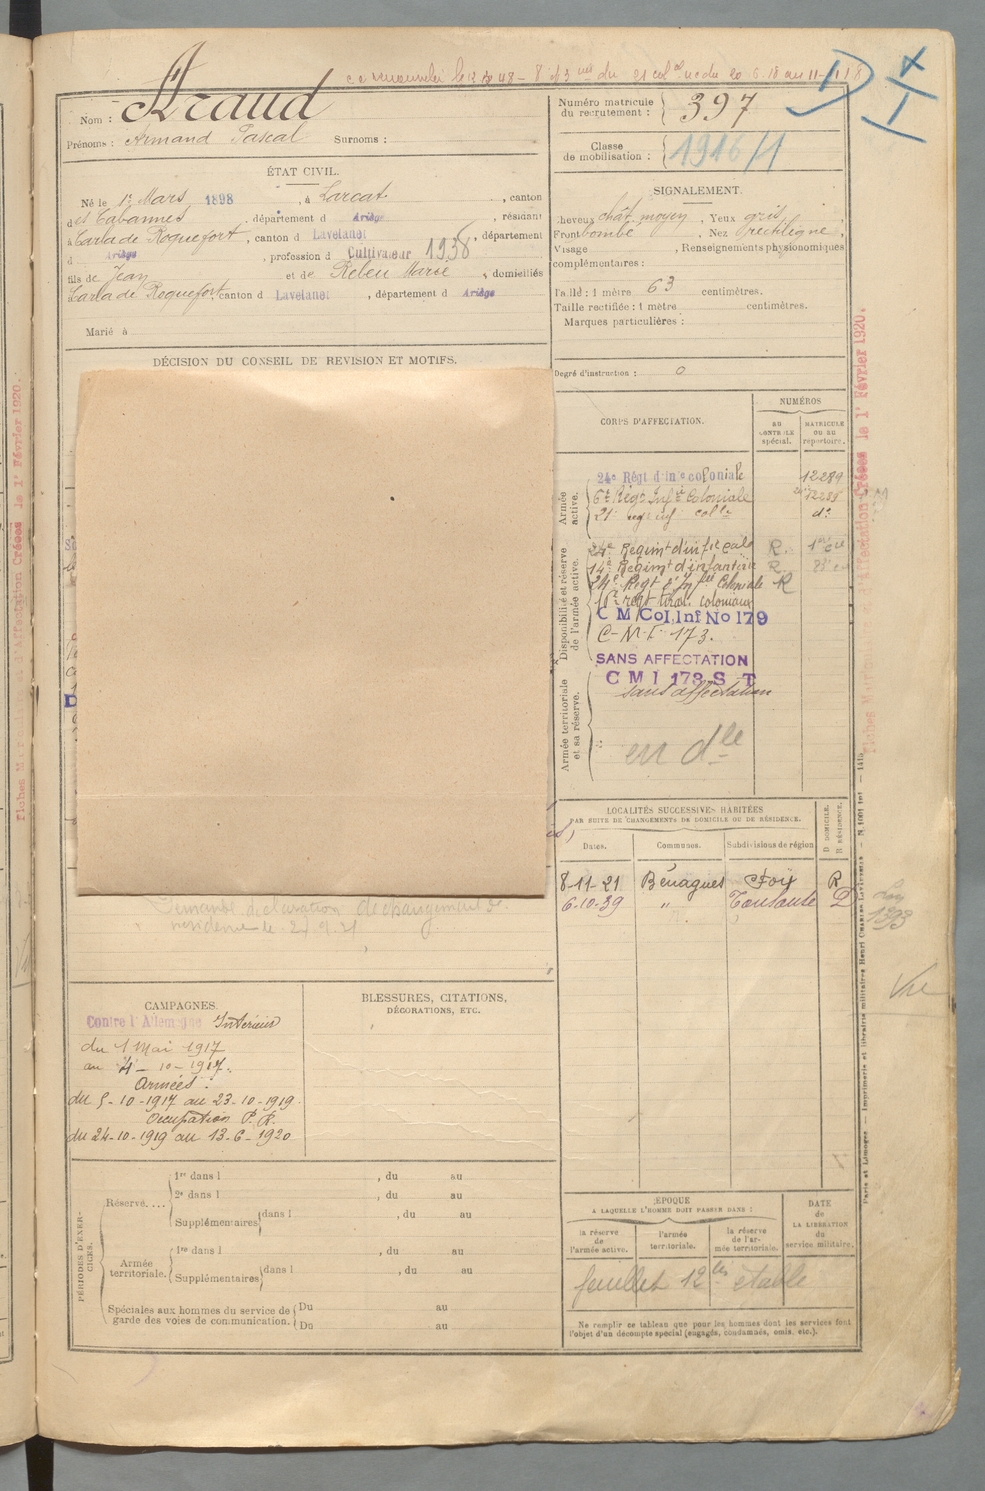 Nom : Araud
Prénoms : Armand Pascal Surnoms :
ÉTAT CIVIL.
Né le 1er Mars 1898, à Larcat, canton
des Cabannes, département d Ariège, résidant
à Carla de Roquefort, canton d Lavelanet, département
d Ariège, profession d Cultivateur 1938
fils de Jean et de Marie, domiciliés
Carla de Roquefort, canton d Lavelanet, département d Ariège
Marié à
DÉCISION DU CONSEIL DE REVISION ET MOTIFS.
Numéro matricule
du recrutement : 397
Classe
de mobilisation : 1916/1
SIGNALEMENT.
Cheveux chât. moyen, Yeux gris,
Front bombé, Nez rectiligne,
Visage , Renseignements physionomiques
complémentaires :
Taille : 1 mètre 63 centimètres.
Taille rectifiée : 1 mètre centimètres.
Marques particulières :
Degré d'instruction : 0
CORPS D'AFFECTATION.
NUMÉROS
AU CONTROLE spécial.
MATRICULE OU AU répertoire.
Armée active.
24e Régt d'infie coloniale 12289
6e Régt Infie Coloniale
21e
Disponibilité et réserve de l'armée active.
24e Régimt d'infie cale R.
14e Régimt d'infanterie R.
24e Régt d'Infie Coloniale R
16e régt tirail. coloniaux
C M Col. Inf No 179
C-M-I- 173.
SANS AFFECTATION
C M I 173 S T
sans affectation
Armée territoriale et sa réserve.
en dlle
LOCALITÉS SUCCESSIVES HABITÉES
PAR SUITE DE CHANGEMENTS DE DOMICILE OU DE RÉSIDENCE.
Dates. Communes. Subdivisions de région D DOMICILE. R RÉSIDENCE.
8-11-21 Bénagues Foix R
6-10-39 " Toulouse D
Demande déclaration de changement de
résidence le
CAMPAGNES.
Contre l'Allemagne Intérieur
du 1 Mai 1917
au 4-10-1917.
Armées :
du 5-10-1917 au 23-10-1919.
Occupation P. R.
du 24-10-1919 au 13-6-1920
BLESSURES, CITATIONS,
DÉCORATIONS, ETC.
PÉRIODES D'EXERCICES.
Réserve....
1re dans l , du au
2e dans l , du au
Supplémentaires dans l , du au
Armée territoriale.
1re dans l , du au
Supplémentaires dans l , du au
Spéciales aux hommes du service de
garde des voies de communication.
Du au
Du au
ÉPOQUE
A LAQUELLE L'HOMME DOIT PASSER DANS :
la réserve de l'armée active.
l'armée territoriale.
la réserve de l'armée territoriale.
DATE de LA LIBÉRATION du service militaire.
feuillet 12 bis établi
Ne remplir ce tableau que pour les hommes dont les services font
l'objet d'un décompte spécial (engagés, condamnés, omis, etc.).
Vu